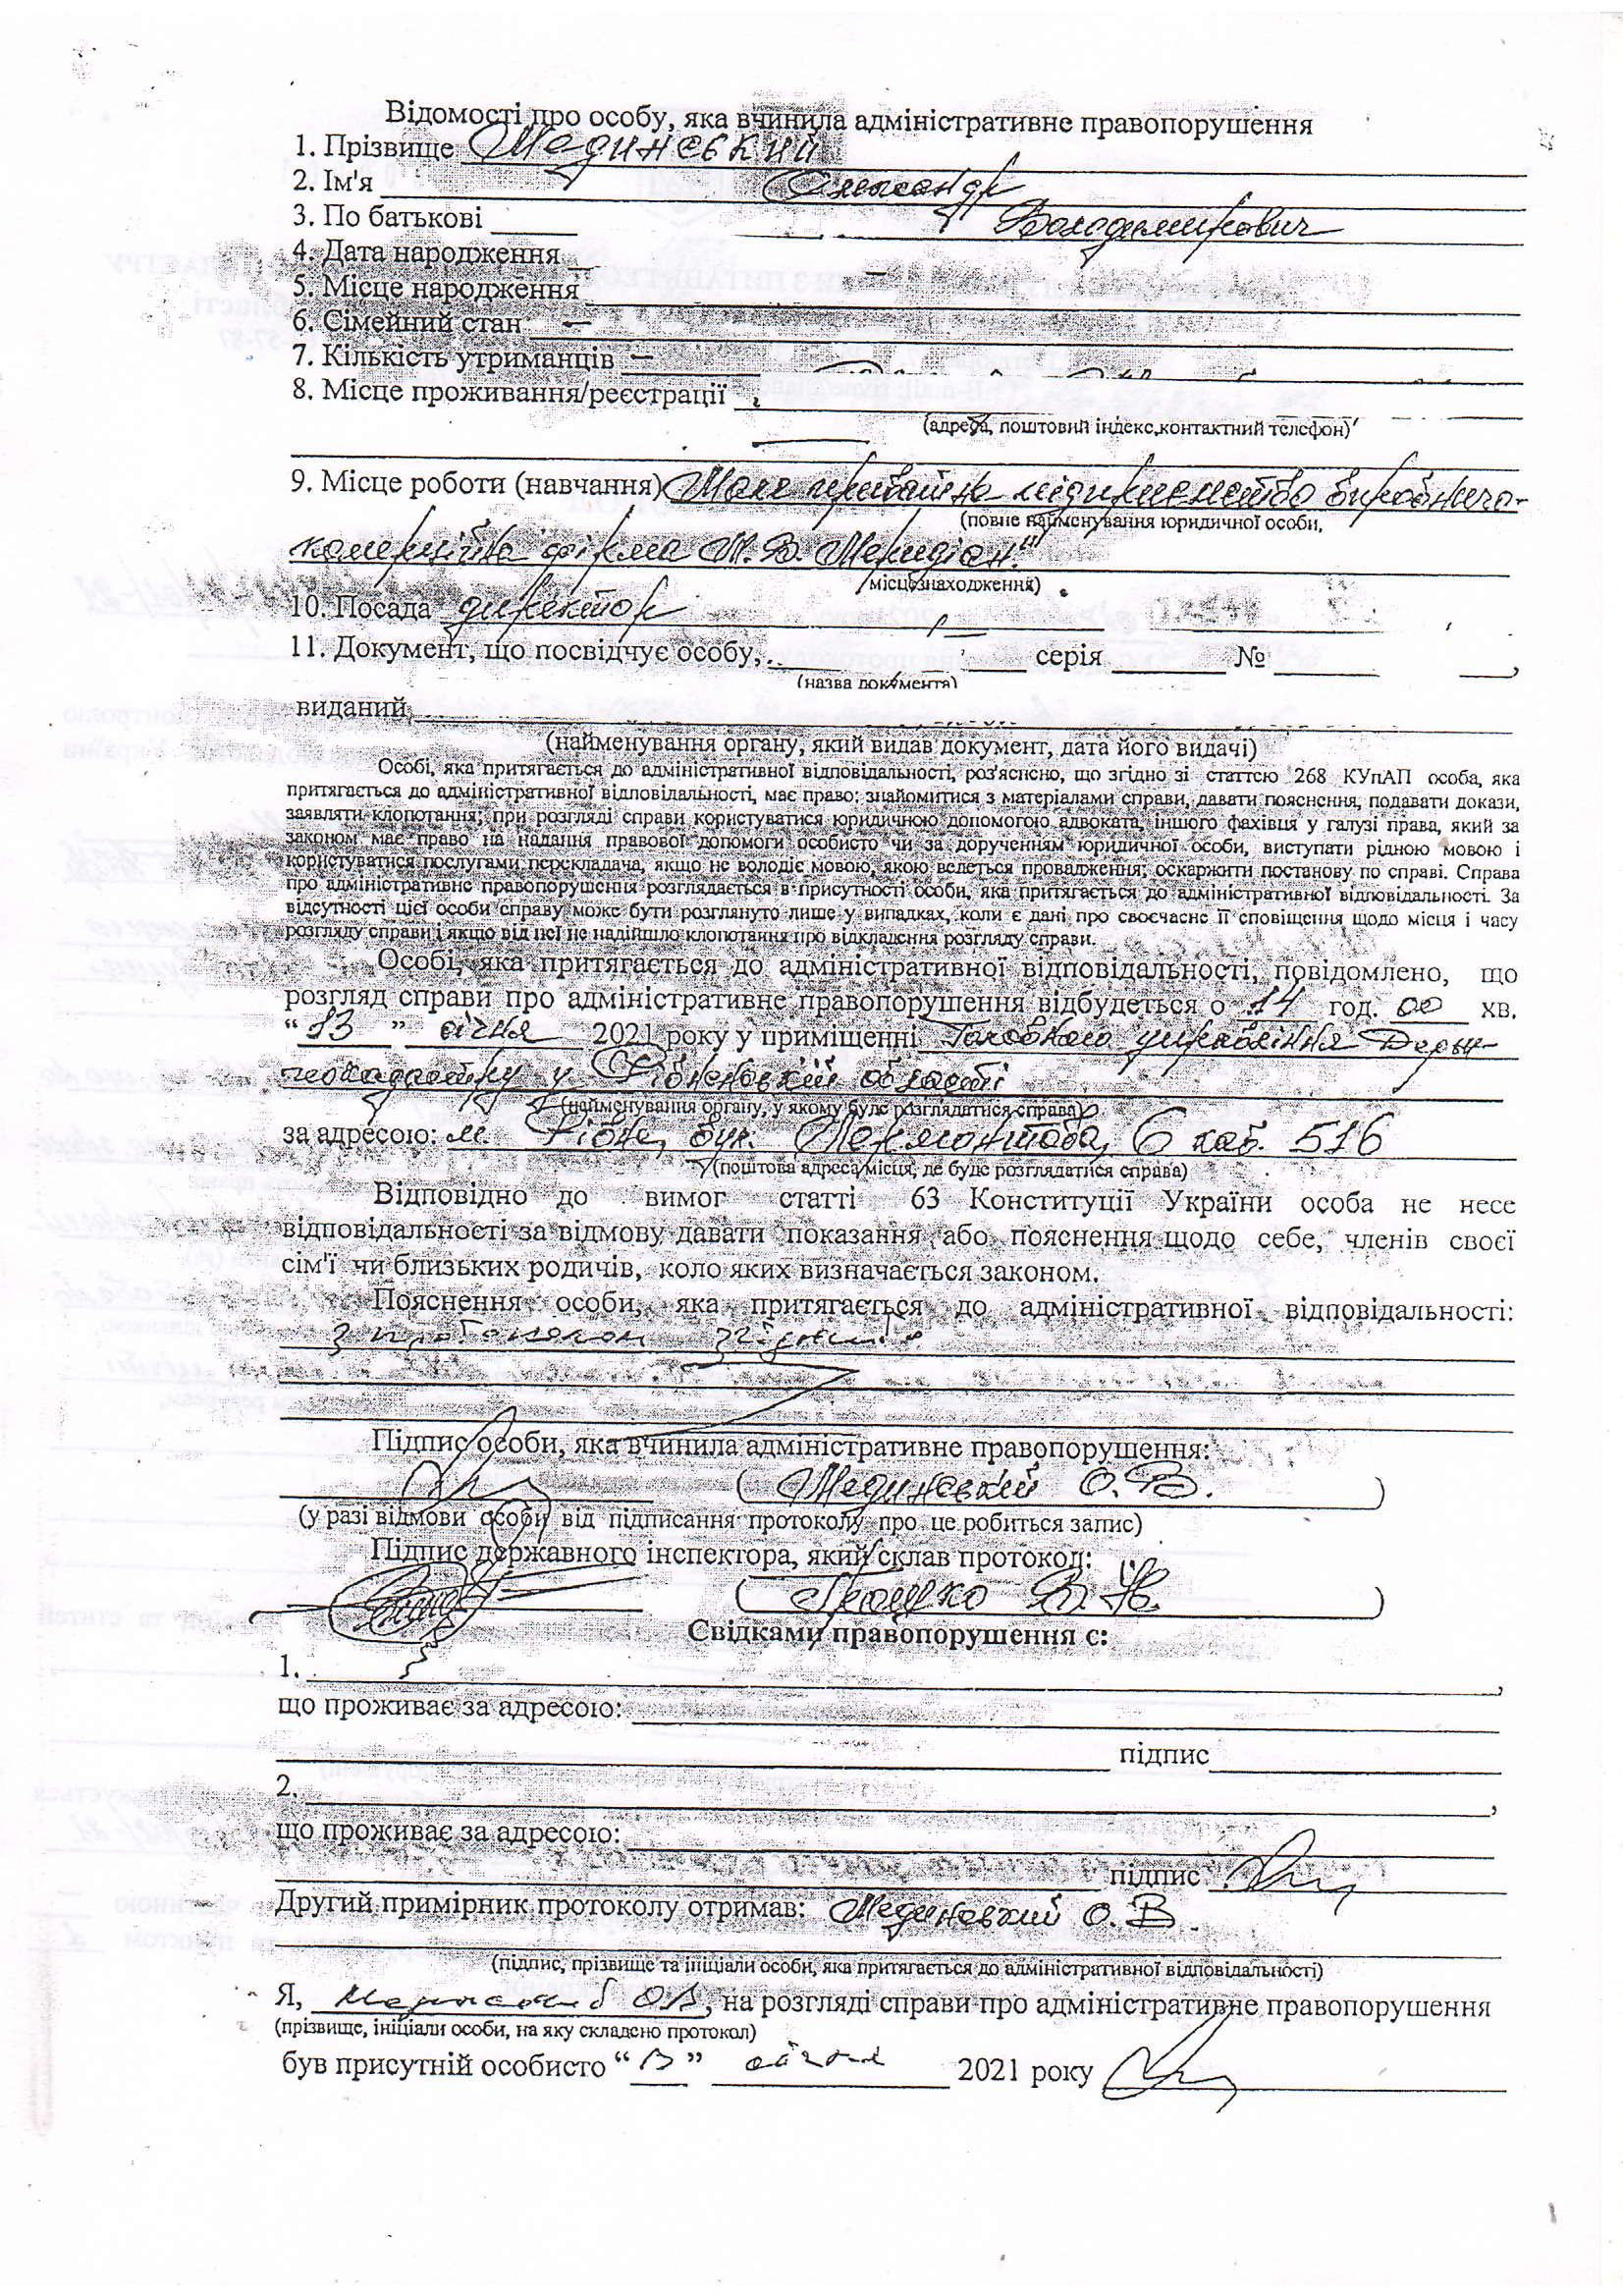 Відомості про особу, яка вчинила адміністративне правопорушення
1. Прізвище Мединський
2. Ім'я Олександр
3. По батькові Володимирович
4. Дата народження
5. Місце народження
6. Сімейний стан —
7. Кількість утриманців —
8. Місце проживання/реєстрації
(адреса, поштовий індекс, контактний телефон)
9. Місце роботи (навчання) Мале приватне підприємство виробничо-
(повне найменування юридичної особи,
комерційна фірма М.В. Меридіан."
місцезнаходження)
10. Посада директор
11. Документ, що посвідчує особу, серія № ,
(назва документа)
виданий
(найменування органу, який видав документ, дата його видачі)
Особі, яка притягається до адміністративної відповідальності, роз'яснено, що згідно зі статтею 268 КУпАП особа, яка
притягається до адміністративної відповідальності, має право: знайомитися з матеріалами справи, давати пояснення, подавати докази,
заявляти клопотання; при розгляді справи користуватися юридичною допомогою адвоката, іншого фахівця у галузі права, який за
законом має право на надання правової допомоги особисто чи за дорученням юридичної особи, виступати рідною мовою і
користуватися послугами перекладача, якщо не володіє мовою, якою ведеться провадження; оскаржити постанову по справі. Справа
про адміністративне правопорушення розглядається в присутності особи, яка притягається до адміністративної відповідальності. За
відсутності цієї особи справу може бути розглянуто лише у випадках, коли є дані про своєчасне її сповіщення щодо місця і часу
розгляду справи і якщо від неї не надійшло клопотання про відкладення розгляду справи.
Особі, яка притягається до адміністративної відповідальності, повідомлено, що
розгляд справи про адміністративне правопорушення відбудеться о 14 год. 00 хв.
“13” січня 2021 року у приміщенні Головного управління Держ-
геокадастру у Рівненській області
(найменування органу, у якому буде розглядатися справа)
за адресою: м. Рівне, вул. Лермонтова, 6 каб. 516
(поштова адреса місця, де буде розглядатися справа)
Відповідно до вимог статті 63 Конституції України особа не несе
відповідальності за відмову давати показання або пояснення щодо себе, членів своєї
сім'ї чи близьких родичів, коло яких визначається законом.
Пояснення особи, яка притягається до адміністративної відповідальності:
З протоколом згідний.
Підпис особи, яка вчинила адміністративне правопорушення:
( Мединський О.В. )
(у разі відмови особи від підписання протоколу про це робиться запис)
Підпис державного інспектора, який склав протокол:
Свідками правопорушення є:
1. ,
що проживає за адресою:
підпис
2. ,
що проживає за адресою:
підпис
Другий примірник протоколу отримав: Мединський О.В.
(підпис, прізвище та ініціали особи, яка притягається до адміністративної відповідальності)
Я, О.В., на розгляді справи про адміністративне правопорушення
(прізвище, ініціали особи, на яку складено протокол)
був присутній особисто “13” січня 2021 року